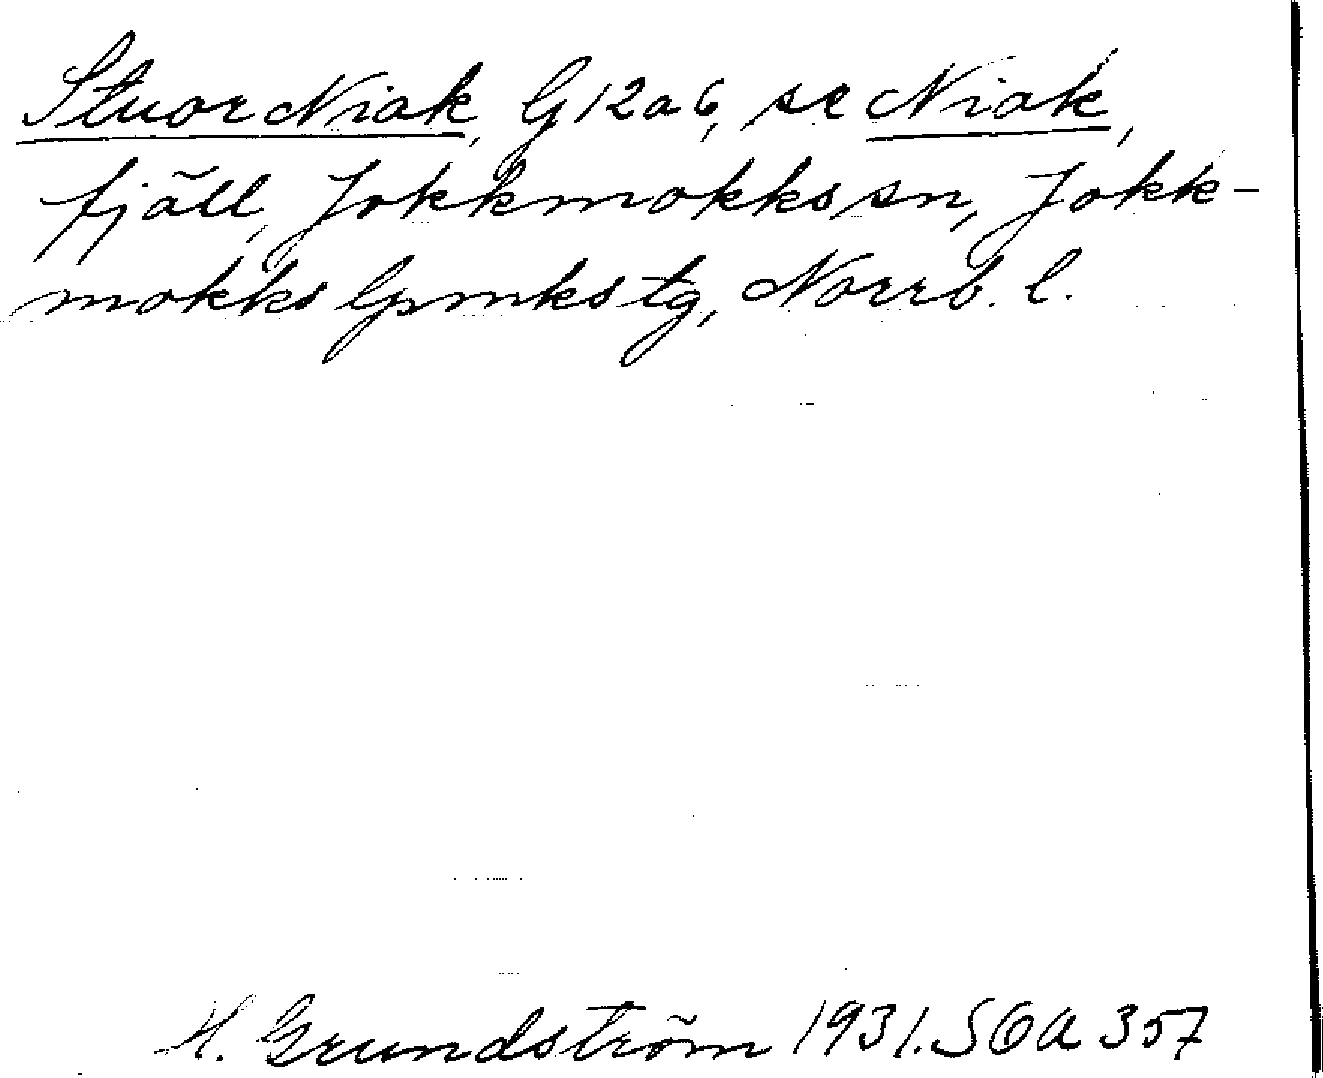 Stuor Niak, G12a6, se Niak,
fjäll, Jokkmokks sn, Jokk-
mokks lpmks tg, Norrb. l.
H. Grundström 1931. SOA 357